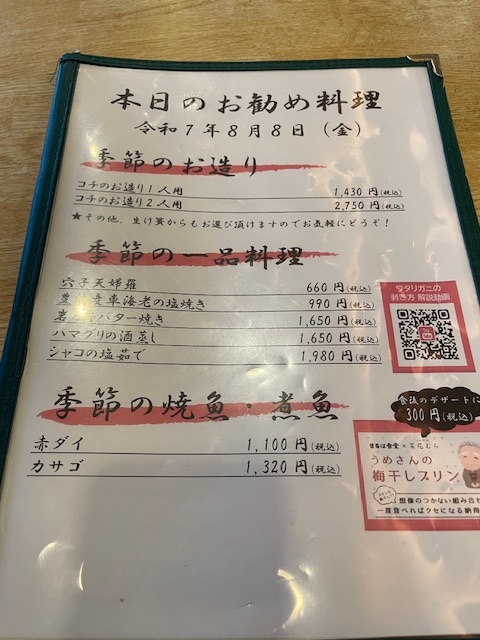 本日のお勧め料理
令和7年8月8日（金）
季節のお造り
コチのお造り1人用 1,430円(税込)
コチのお造り2人用 2,750円(税込)
★その他、生け簀からもお選び頂けますのでお気軽にどうぞ！
季節の一品料理
穴子天婦羅 660円(税込)
車海老の塩焼き 990円(税込)
バター焼き 1,650円(税込)
ハマグリの酒蒸し 1,650円(税込)
シャコの塩茹で 1,980円(税込)
ワタリガニの
剥き方 解説動画
季節の焼魚・煮魚
赤ダイ 1,100円(税込)
カサゴ 1,320円(税込)
食後のデザートに
300円(税込)
まるは食堂×
うめさんの
梅干しプリン
想像のつかない組み合わ
一度食べればクセになる納得